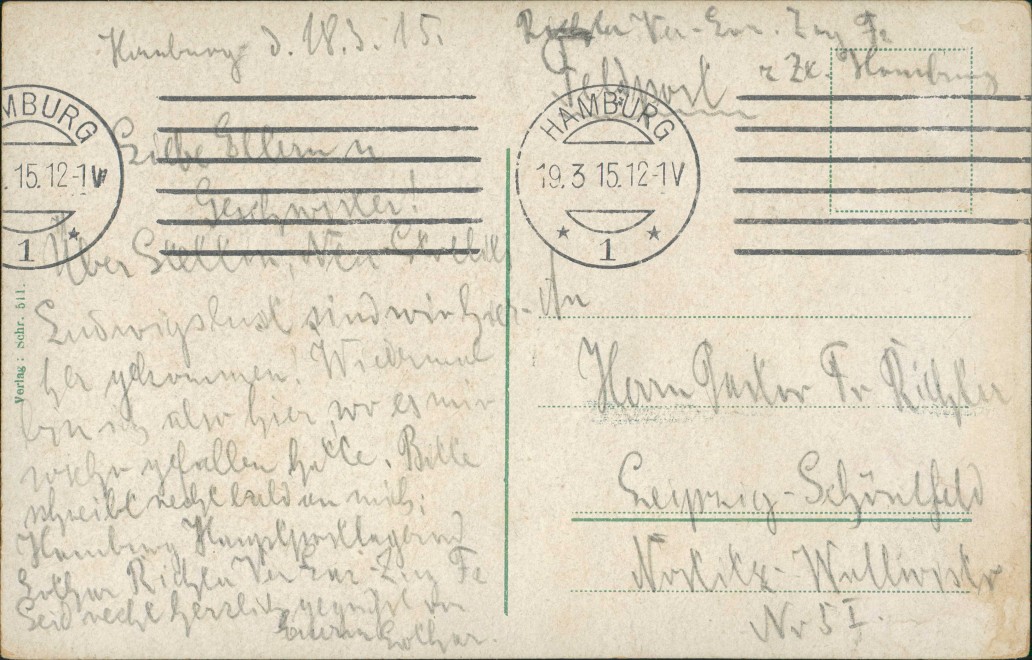 Hamburg d. 18.3.15.
Liebe Eltern u
Geschwister!
Über Stettin, Neu Strelitz
Ludwigslust sind wir hier-
her gekommen. Wiedermal
bin ich also hier, wo es mir
so sehr gefallen hatte. Bitte
schreibt recht bald an mich:
Hamburg Hauptpostlagernd
Lothar Richter Ver Zug Fe
Seid recht herzlich gegrüßt von
Eurem Lothar.
Verlag: Schr. 511.
HAMBURG
.15.12-1V
1
Richter Ver- Zug Fe
z Zt. Hamburg
Feldpost
HAMBURG
19.3 15.12-1V
1
An
Herrn Pastor Fr Richter
Leipzig-Schönefeld
Nostitz-Wallwitzstr
Nr 5 I.